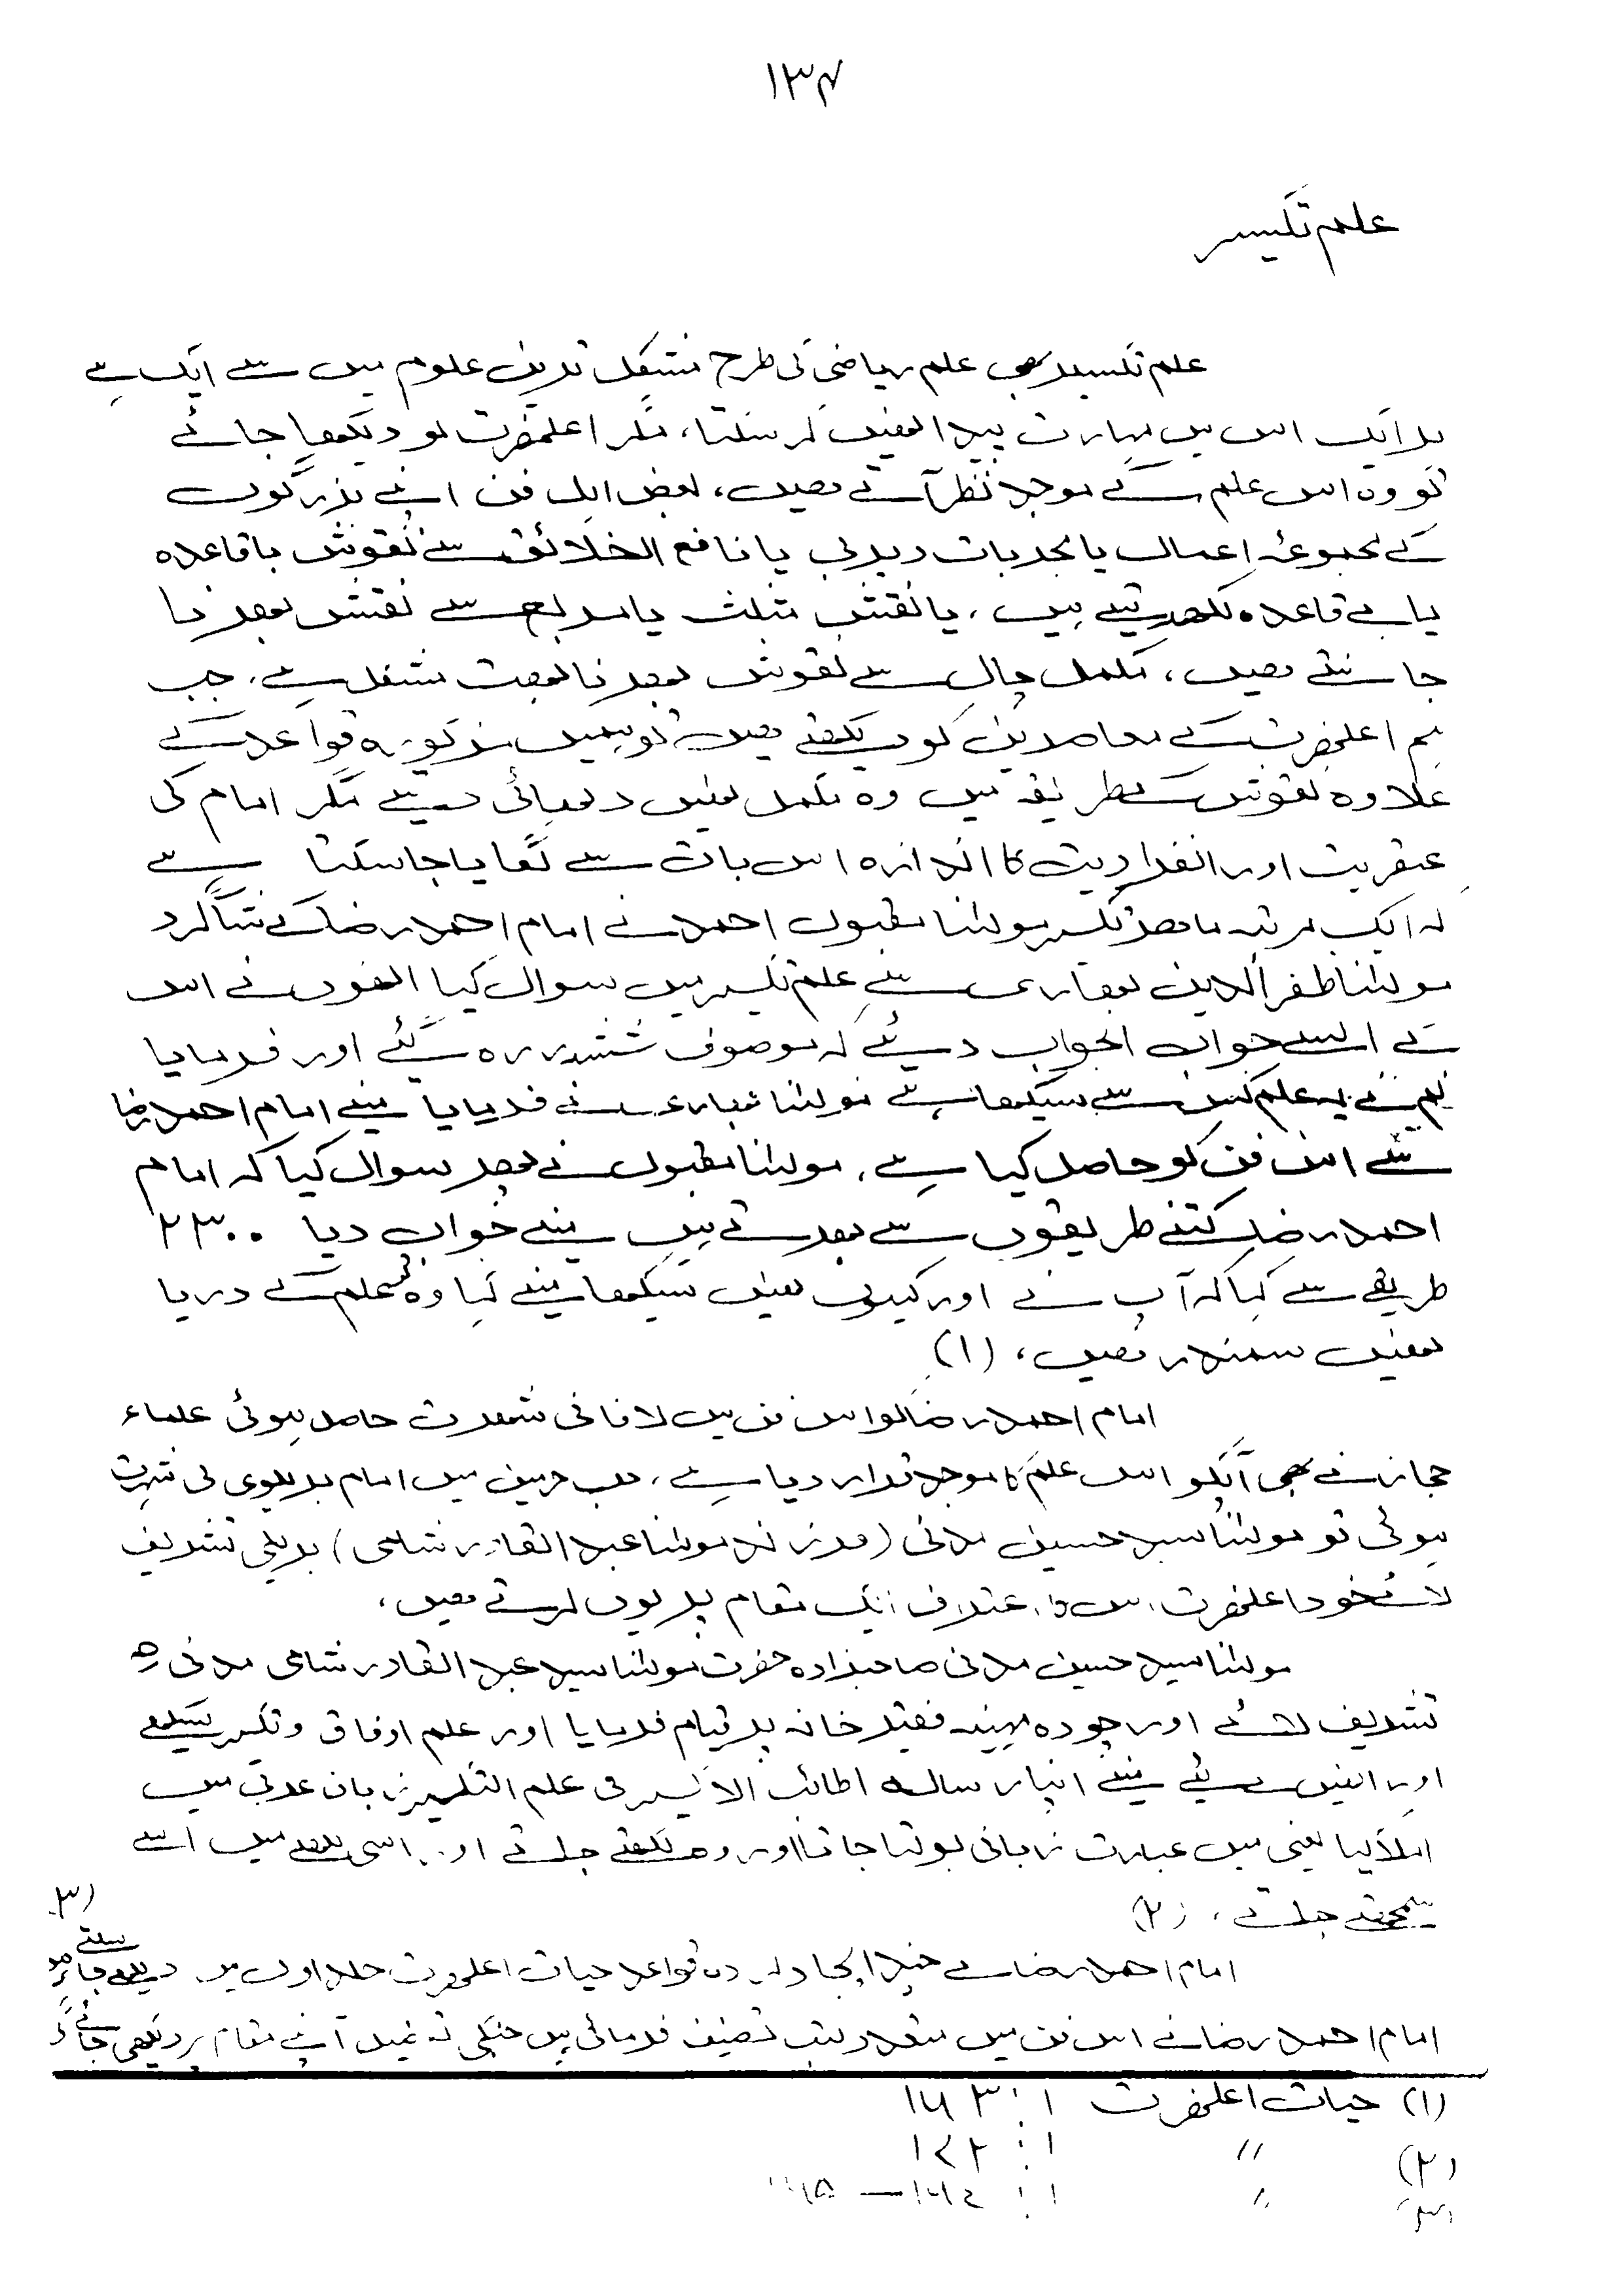 ۱۳۴
علم تکسیر
علم تکسیر بھی علم ریاضی کی طرح مشکل ترین علوم میں سے ایک ہے
ہر ایک اس میں مہارت پیدا نھیں کر سکتا، مگر اعلحضرت کو دیکھا جائے
تو وہ اس علم کے موجد نظر آتے ھیں، بعض اہل فن اپنے بزرگوں
کے مجموعۂ اعمال یا مجربات دیربی یا نافع الخلائق سے نقوش باقاعدہ
یا بے قاعدہ لکھدیتے ہیں، یا نقش مثلث یا مربع سے نقش بھرنا
جانتے ھیں، مکمل چال سے نقوش بھرنا بھت مشکل ہے، جب
ہم اعلحضرت کے معاصرین کو دیکھتے ھیں تو ہمیں مذکورہ قواعد کے
علاوہ نقوش کے طریقہ میں وہ مکمل نھیں دکھائی دیتے مگر امام کی
عبقریت اور انفرادیت کا اندازہ اس بات سے لگایا جا سکتا ہے
کہ ایک مرتبہ ماھر تکسیر مولٰنا مقبول احمد نے امام احمد رضا کے شاگرد
مولٰنا ظفر الدین بھاری سے علم تکسیر میں سوال کیا انھوں نے اس
کے ایسے جواب الجواب دیئے کہ موصوف ششدر رہ گئے اور فرمایا
تم نے یہ علم کس سے سیکھا ہے مولٰنا بھاری نے فرمایا مینے امام احمد رضا
سے اس فن کو حاصل کیا ہے، مولٰنا مقبول نے پھر سوال کیا کہ امام
احمد رضا کتنے طریقوں سے بھرتے ہیں مینے جواب دیا ۲۳۰۰
طریقے سے کہا کہ آپ نے اور کیوں نھیں سیکھا مینے کہا وہ علم کے دریا
نھیں سمندر ھیں، (۱)
امام احمد رضا کو اس فن میں لافانی شھرت حاصل ہوئی علماء
حجاز نے بھی آپکو اس علم کا موجد قرار دیا ہے، جب حرمین میں امام بریلوی کی شہرت
ہوئی تو مولٰنا سید حسین مدنی (فرزند مولٰنا عبد القادر شامی) بریلی تشریف
لائے خود اعلحضرت اس کا اعتراف ایک مقام پر یوں کرتے ھیں،
مولٰنا سید حسین مدنی صاحبزادہ حضرت مولٰنا سید عبد القادر شامی مدنی رح
تشریف لائے اور چودہ مہینہ فقیر خانہ پر قیام فرمایا اور علم اوفاق و تکسیر سیکھے
اور انہیں کے لئے مینے اپنا رسالہ اطائب الاکسیر فی علم التکسیر زبان عربی میں
املا کیا یعنی میں عبارت زبانی بولتا جاتا اور وہ لکھتے جاتے اور اسی لکھنے میں اسے
سمجھتے جاتے، (۲)
امام احمد رضا کے چند ایجاد کردہ قواعد حیات اعلحضرت جلد اول میں دیکھے جا سکتے ہیں (۳)
امام احمد رضا نے اس فن میں متعدد کتب تصنیف فرمائی ہیں جنکی تفصیل اپنے مقام پر دیکھی جائے گی
(۱) حیات اعلحضرت ۱ : ۱۶۳
(۲) // ۱ : ۱۷۲
(۳) //